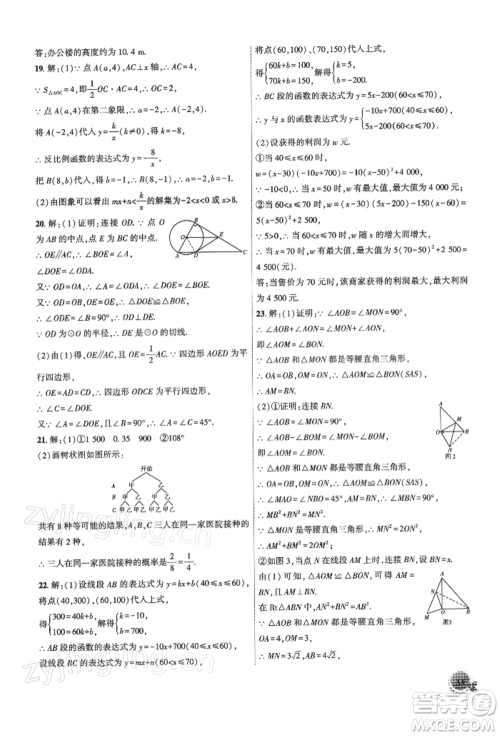 答:办公楼的高度约为 10.4 m.
19. 解:(1)∵ 点 A(a,4),AC⊥x 轴,∴ AC=4,OC=-a.
∵ S△AOC=4,即 1/2 AC·OC=4,∴ OC=2.
∵ 点 A(a,4)在第二象限,∴ a=-2,∴ A(-2,4).
将 A(-2,4)代入 y=k/x(k≠0),得 k=-8,
∴ 反比例函数的表达式为 y=-8/x,
把 B(8,b)代入,得 b=-1,∴ B(8,-1),∴ a=-2,b=-1.
(2)由图象可以看出 mx+n<k/x 的解集为-2<x<0 或 x>8.
20. 解:(1)证明:连接 OD.∵ 点 O
为 AB 的中点,
点 E 为 BC 的中点,
∴ OE∥AC,∴ ∠BOE=∠A,
∠DOE=∠ODA.
∵ OD=OA,∴ ∠A=∠ODA,
∴ ∠BOE=∠DOE.
∵ OD=OB,OE=OE,
∴ △ODE≌△OBE,
∴ ∠ODE=∠OBE=90°.
∵ OD为⊙O 的半径,∴ DE 是⊙O 的切线.
(2)由(1)得,OE∥AC,OE=1/2 AC.∵ 四边形 AOED 为平
行四边形,
∴ OE=AD=CD,∴ 四边形 ODCE 为平行四边形,
∴ OD∥BC,∴ ∠AOD=∠B=90°,∴ ∠A=∠C=45°.
21. 解:(1)①1 500 0.35 900 ②108°
(2)画树状图如图所示:
开始
甲 乙
甲 乙 甲 乙
甲 乙 甲 乙 甲 乙 甲 乙
共有 8 种等可能的结果,三人在同一家医院接种的结
果有 2 种,
∴ 三人在同一家医院接种的概率是 2/8=1/4.
22. 解:(1)设线段 AB 的表达式为 y=kx+b(40≤x≤60),
将点(40,300),(60,100)代入上式,
得{300=40k+b 100=60k+b,解得{k=-10 b=700,
∴ AB 段的函数的表达式为 y=-10x+700(40≤x≤60).
设线段 BC 的表达式为 y=mx+n(60<x≤70),
将点(60,100),(70,150)代入上式,
得{60k+b=100 70k+b=150,解得{k=5 b=-200,
∴ BC 段的函数的表达式为 y=5x-200(60<x≤70),
∴ y 与 x 的函数关系式为 y={-10x+700(40≤x≤60) 5x-200(60<x≤70).
(2)设获得的利润为 w 元,
①当 40≤x≤60 时,
w=(x-30)(-10x+700)=-10(x-50)²+4 000,
∵ -10<0,∴ 当 x=50 时,w 有最大值,最大值为 4 000元;
②当 60<x≤70 时,
w=(x-30)(5x-200)=5(x-35)²-125,
∵ 5>0,∴ 当 60<x≤70 时,w 随 x 的增大而增大,
∴ 当 x=70 时,w 有最大,最大值为 5(70-50)²+2
500=4 500(元).
答:当售价为 70 元时,该商家获得的利润最大,最大利润为
4 500 元.
23. 解:(1)证明:∵ ∠AOB=∠MON=90°,
∴ ∠AOB+∠AON=∠MON+∠AON,
即∠AOM=∠BON,
∵ △AOB 和△MON 都是等腰直角三角形,
∴ OA=OB,OM=ON,∴ △AOM≌△BON(SAS),
∴ AM=BN.
(2)①证明:连接 BN,
∵ ∠AOB=∠MON=90°,
∴ ∠AOB-∠BOM=∠MON-∠BOM,
即∠AOM=∠BON,
∵ △AOB 和△MON 都是等腰直角三角形,
∴ OA=OB,OM=ON,
∴ △AOM≌△BON(SAS),
∴ ∠MAO=∠NBO=45°,AM=BN,
∴ ∠MBN=90°,
∴ MB²+BN²=MN².
∵ △MON 是等腰直角三角形,
∴ MN²=2ON²,
∴ AM²+BM²=2OM².
②如图 3,当点 N 在线段 AM 上时,连接 BN,设 BN=x.
由(1)可知△AOM≌△BON,可得 AM=
BN 且 AM⊥BN,
在 Rt△ABN 中,AN²+BN²=AB²,
∵ △AOB 和△MON 都是等腰直角三
角形,
∴ MN=3√2,AB=4√2,
图2
图3